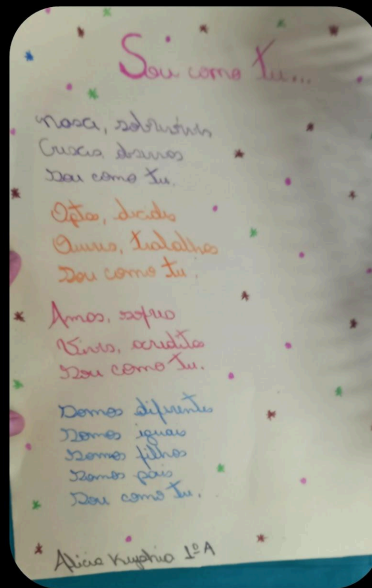 Sou como tu...
Nasci, sobrevivi
Cresci,
Sou como tu.
Opto, decido
trabalho
Sou como tu.
Amos, sofro
Vivo, acredito
Sou como tu.
Somos diferentes
Somos iguais
Somos filhos
Somos pais
Sou como tu.
Alicia 1º A